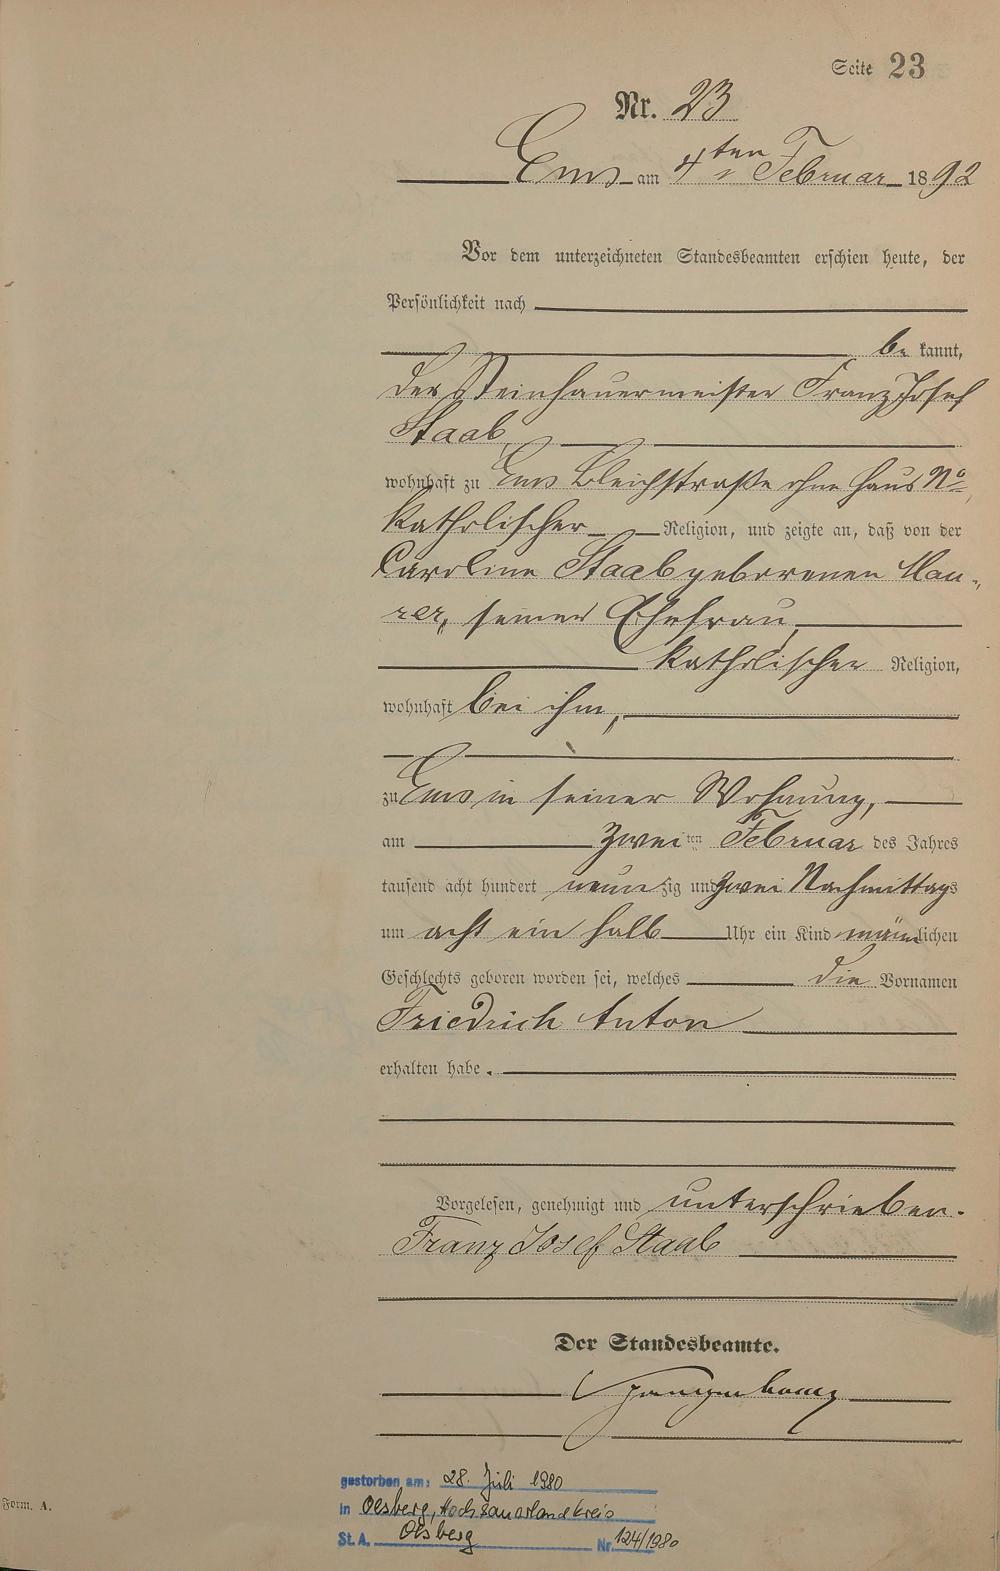 Seite 23
Nr. 23
Ems am 4ten Februar 1892
Vor dem unterzeichneten Standesbeamten erschien heute, der
Persönlichkeit nach
be kannt,
der Steinhauermeister Franz Josef
Staab,
wohnhaft zu Ems Bleichstraße ohne Haus No
katholischer Religion, und zeigte an, daß von der
Caroline Staab geborenen Mau-
rer, seiner Ehefrau,
katholischer Religion,
wohnhaft bei ihm,
zu Ems in seiner Wohnung,
am zweiten Februar des Jahres
tausend acht hundert neunzig und zwei Nachmittags
um acht ein halb Uhr ein Kind männlichen
Geschlechts geboren worden sei, welches die Vornamen
Friedrich Anton
erhalten habe.
Vorgelesen, genehmigt und unterschrieben.
Franz Josef Staab
Der Standesbeamte.
gestorben am: 28. Juli 1980
in Olsberg, Hochsauerlandkreis
St. A. Olsberg Nr. 124/1980
Form. A.